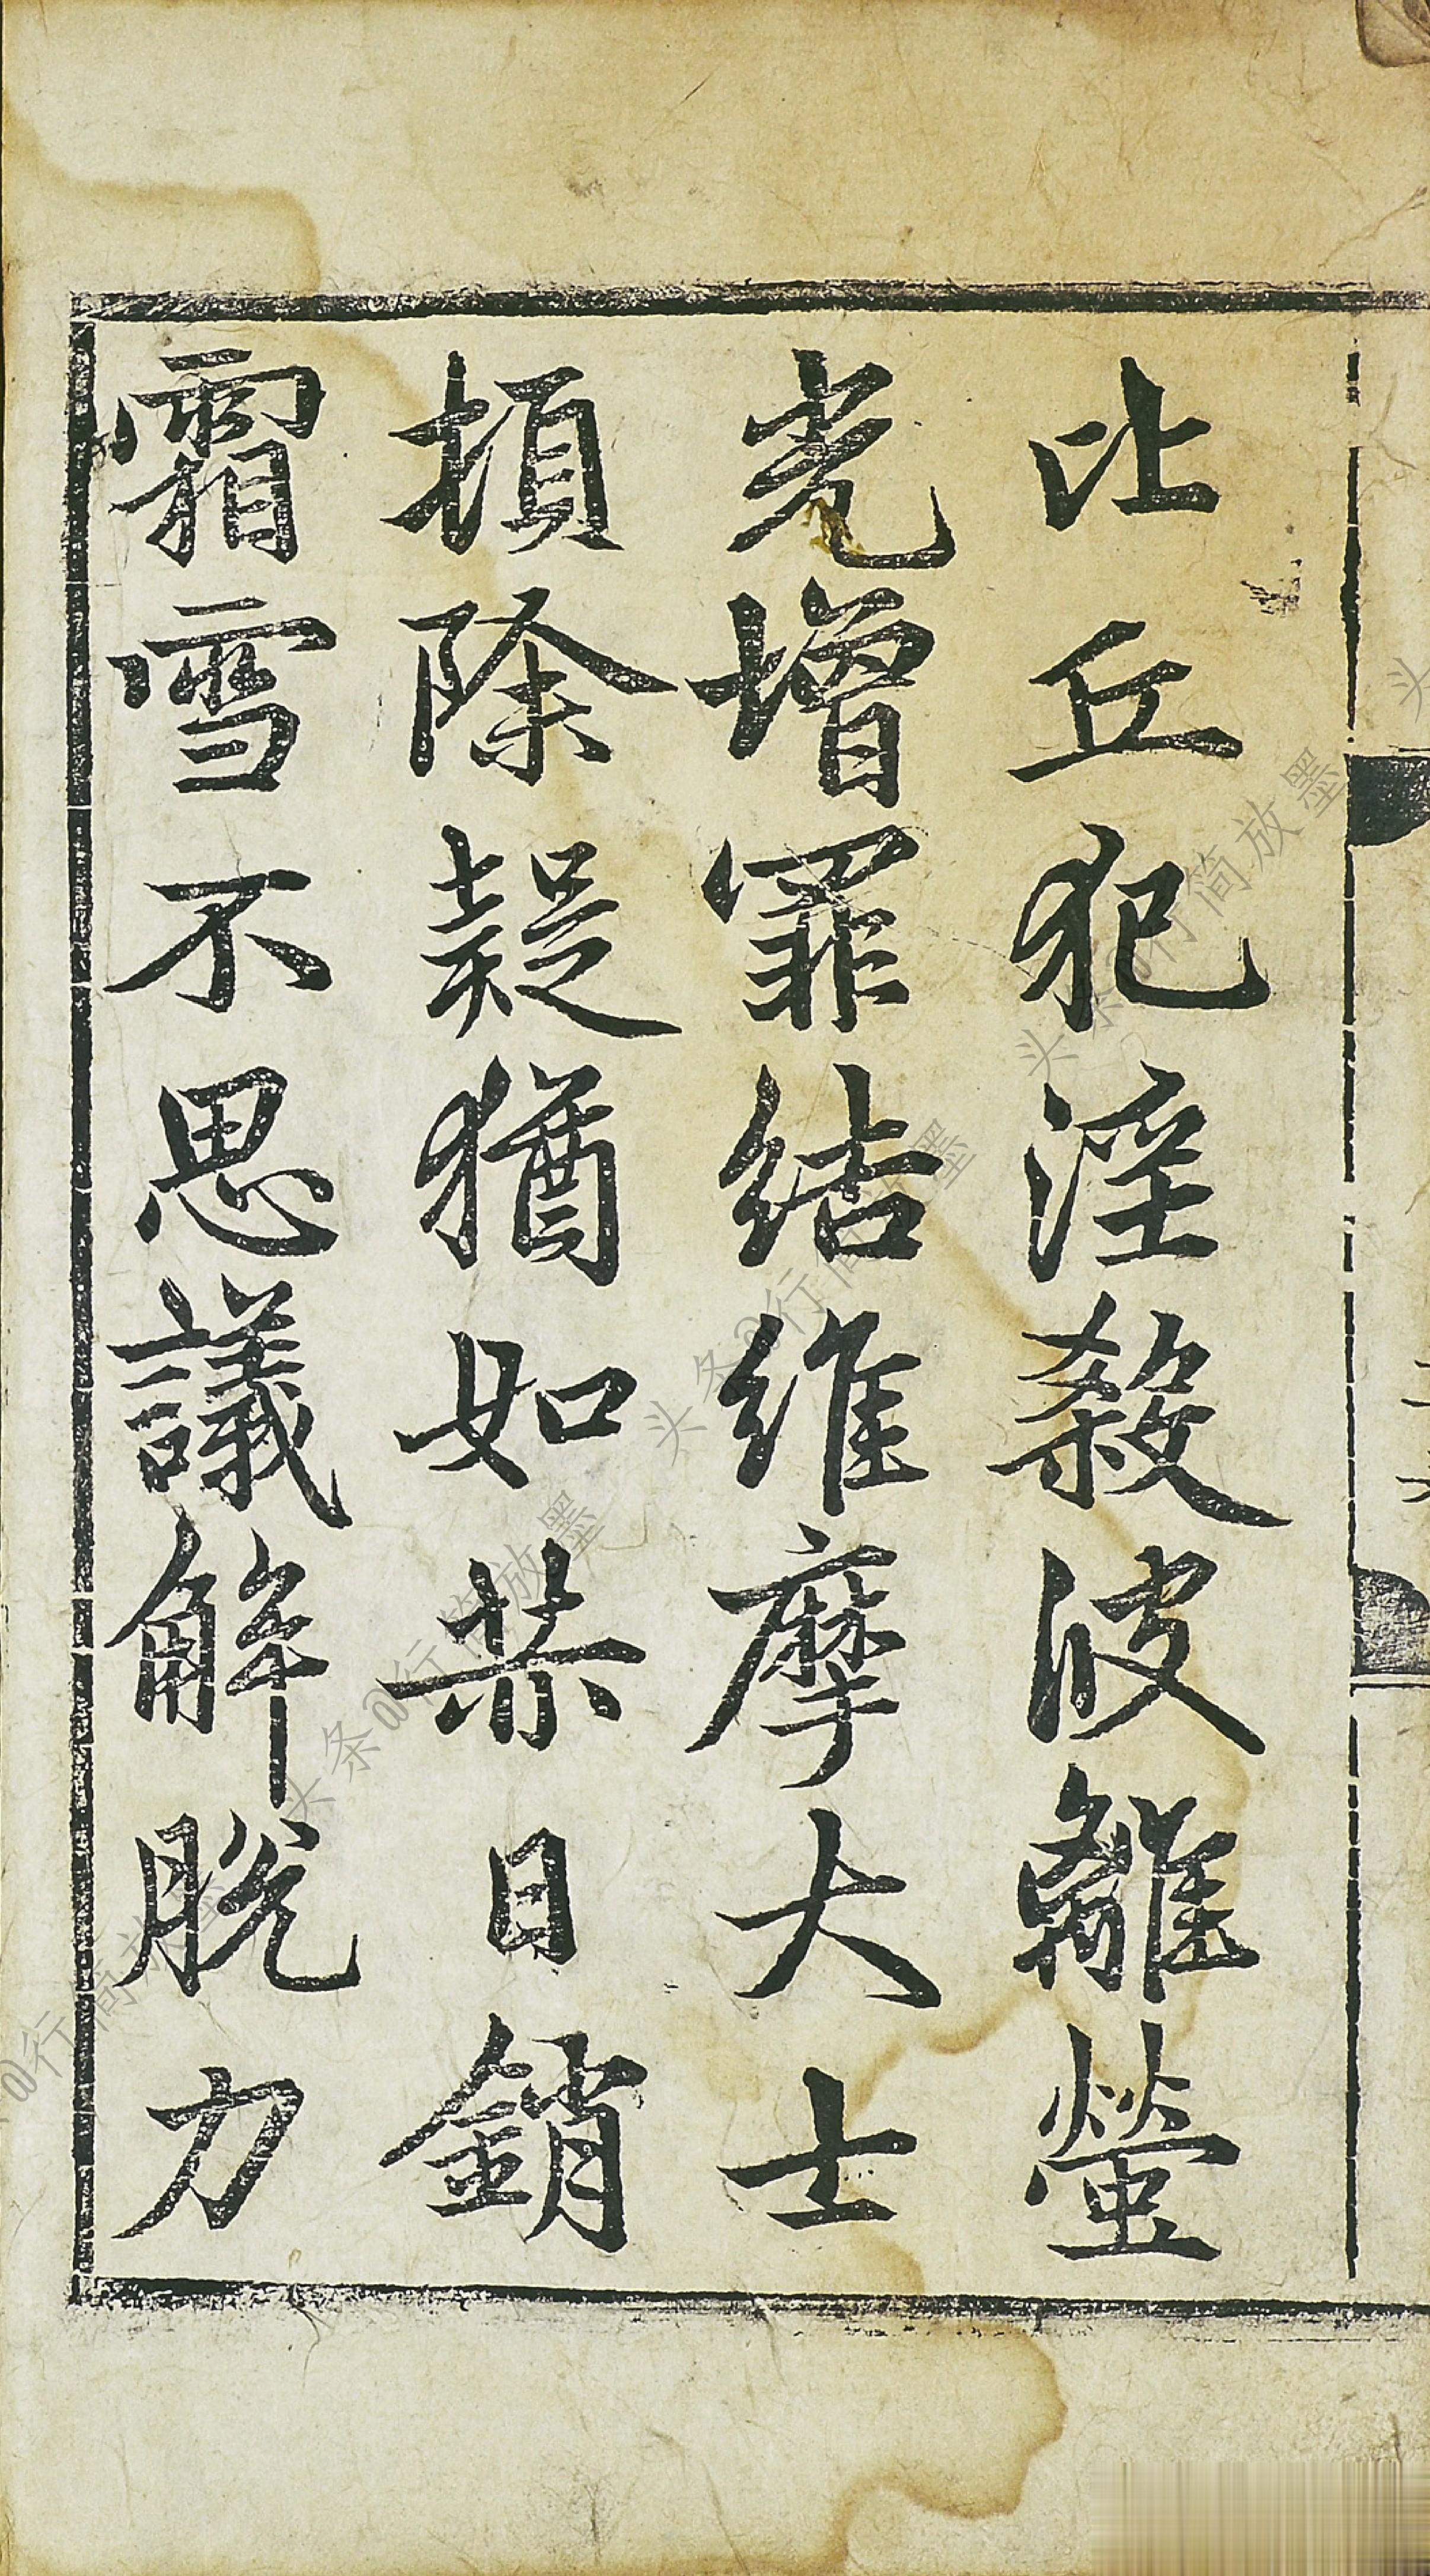 比丘犯淫殺波離螢
光增罪結維摩大士
頓除疑猶如杲日銷
霜雪不思議解脫力
头条@行简放墨
头条@行简放墨
头条@行简放墨